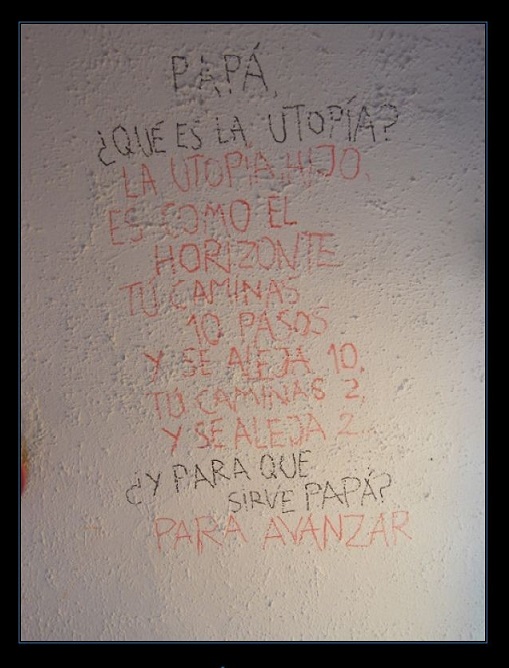 PAPÁ,
¿QUÉ ES LA UTOPÍA?
LA UTOPIA HIJO,
ES COMO EL
HORIZONTE
TU CAMINAS
10 PASOS
Y SE ALEJA 10.
TU CAMINAS 2,
Y SE ALEJA 2.
¿Y PARA QUE
SIRVE PAPÁ?
PARA AVANZAR